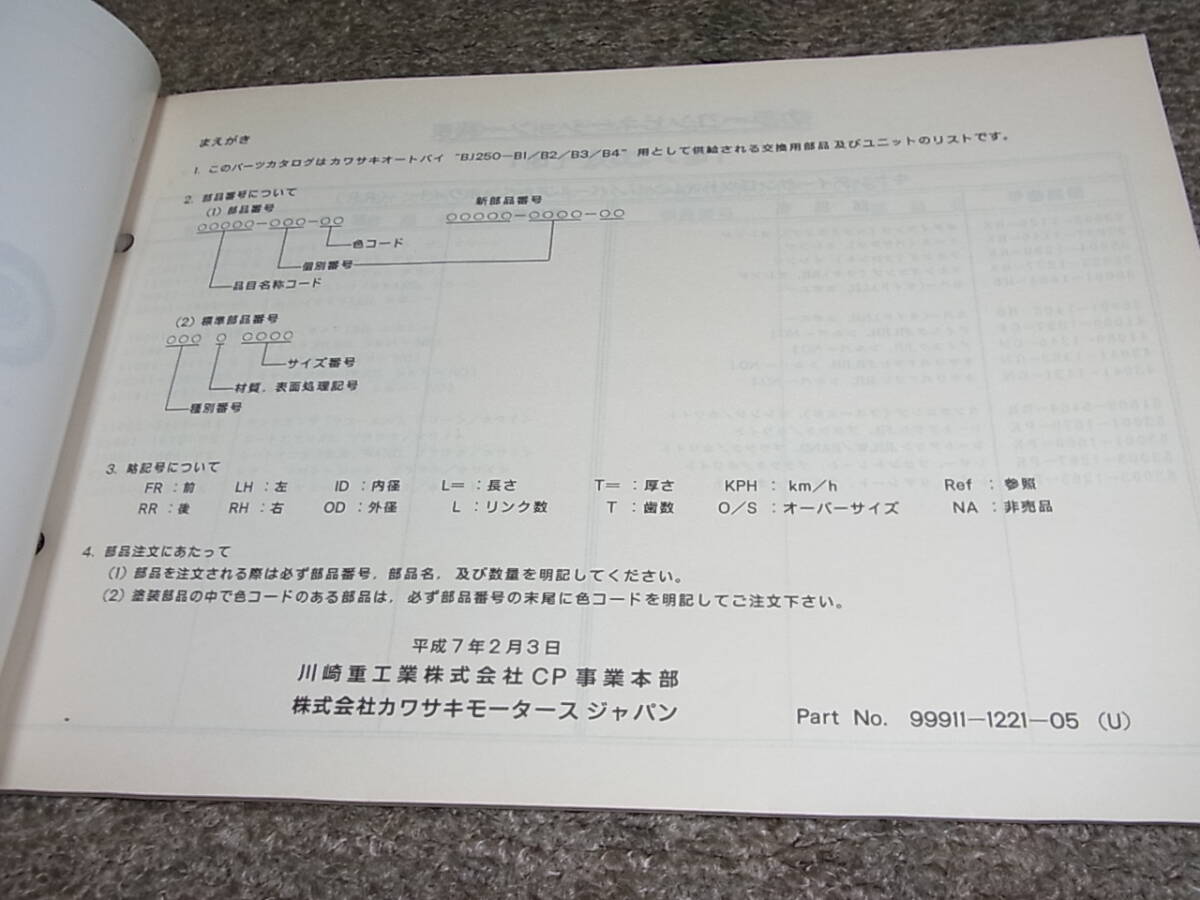 まえがき
1. このパーツカタログはカワサキオートバイ "BJ250-B1/B2/B3/B4" 用として供給される交換用部品及びユニットのリストです。
2. 部品番号について
(1) 部品番号 新部品番号
○○○○○-○○○-○○ ○○○○○-○○○○-○○
色コード
個別番号
品目名称コード
(2) 標準部品番号
○○○ ○ ○○○○
サイズ番号
材質, 表面処理記号
種別番号
3. 略記号について
FR : 前 LH : 左 ID : 内径 L= : 長さ T= : 厚さ KPH : km/h Ref : 参照
RR : 後 RH : 右 OD : 外径 L : リンク数 T : 歯数 O/S : オーバーサイズ NA : 非売品
4. 部品注文にあたって
(1) 部品を注文される際は必ず部品番号, 部品名, 及び数量を明記してください。
(2) 塗装部品の中で色コードのある部品は, 必ず部品番号の末尾に色コードを明記してご注文下さい。
平成7年2月3日
川崎重工業株式会社CP事業本部
株式会社カワサキモータースジャパン
Part No. 99911-1221-05 (U)